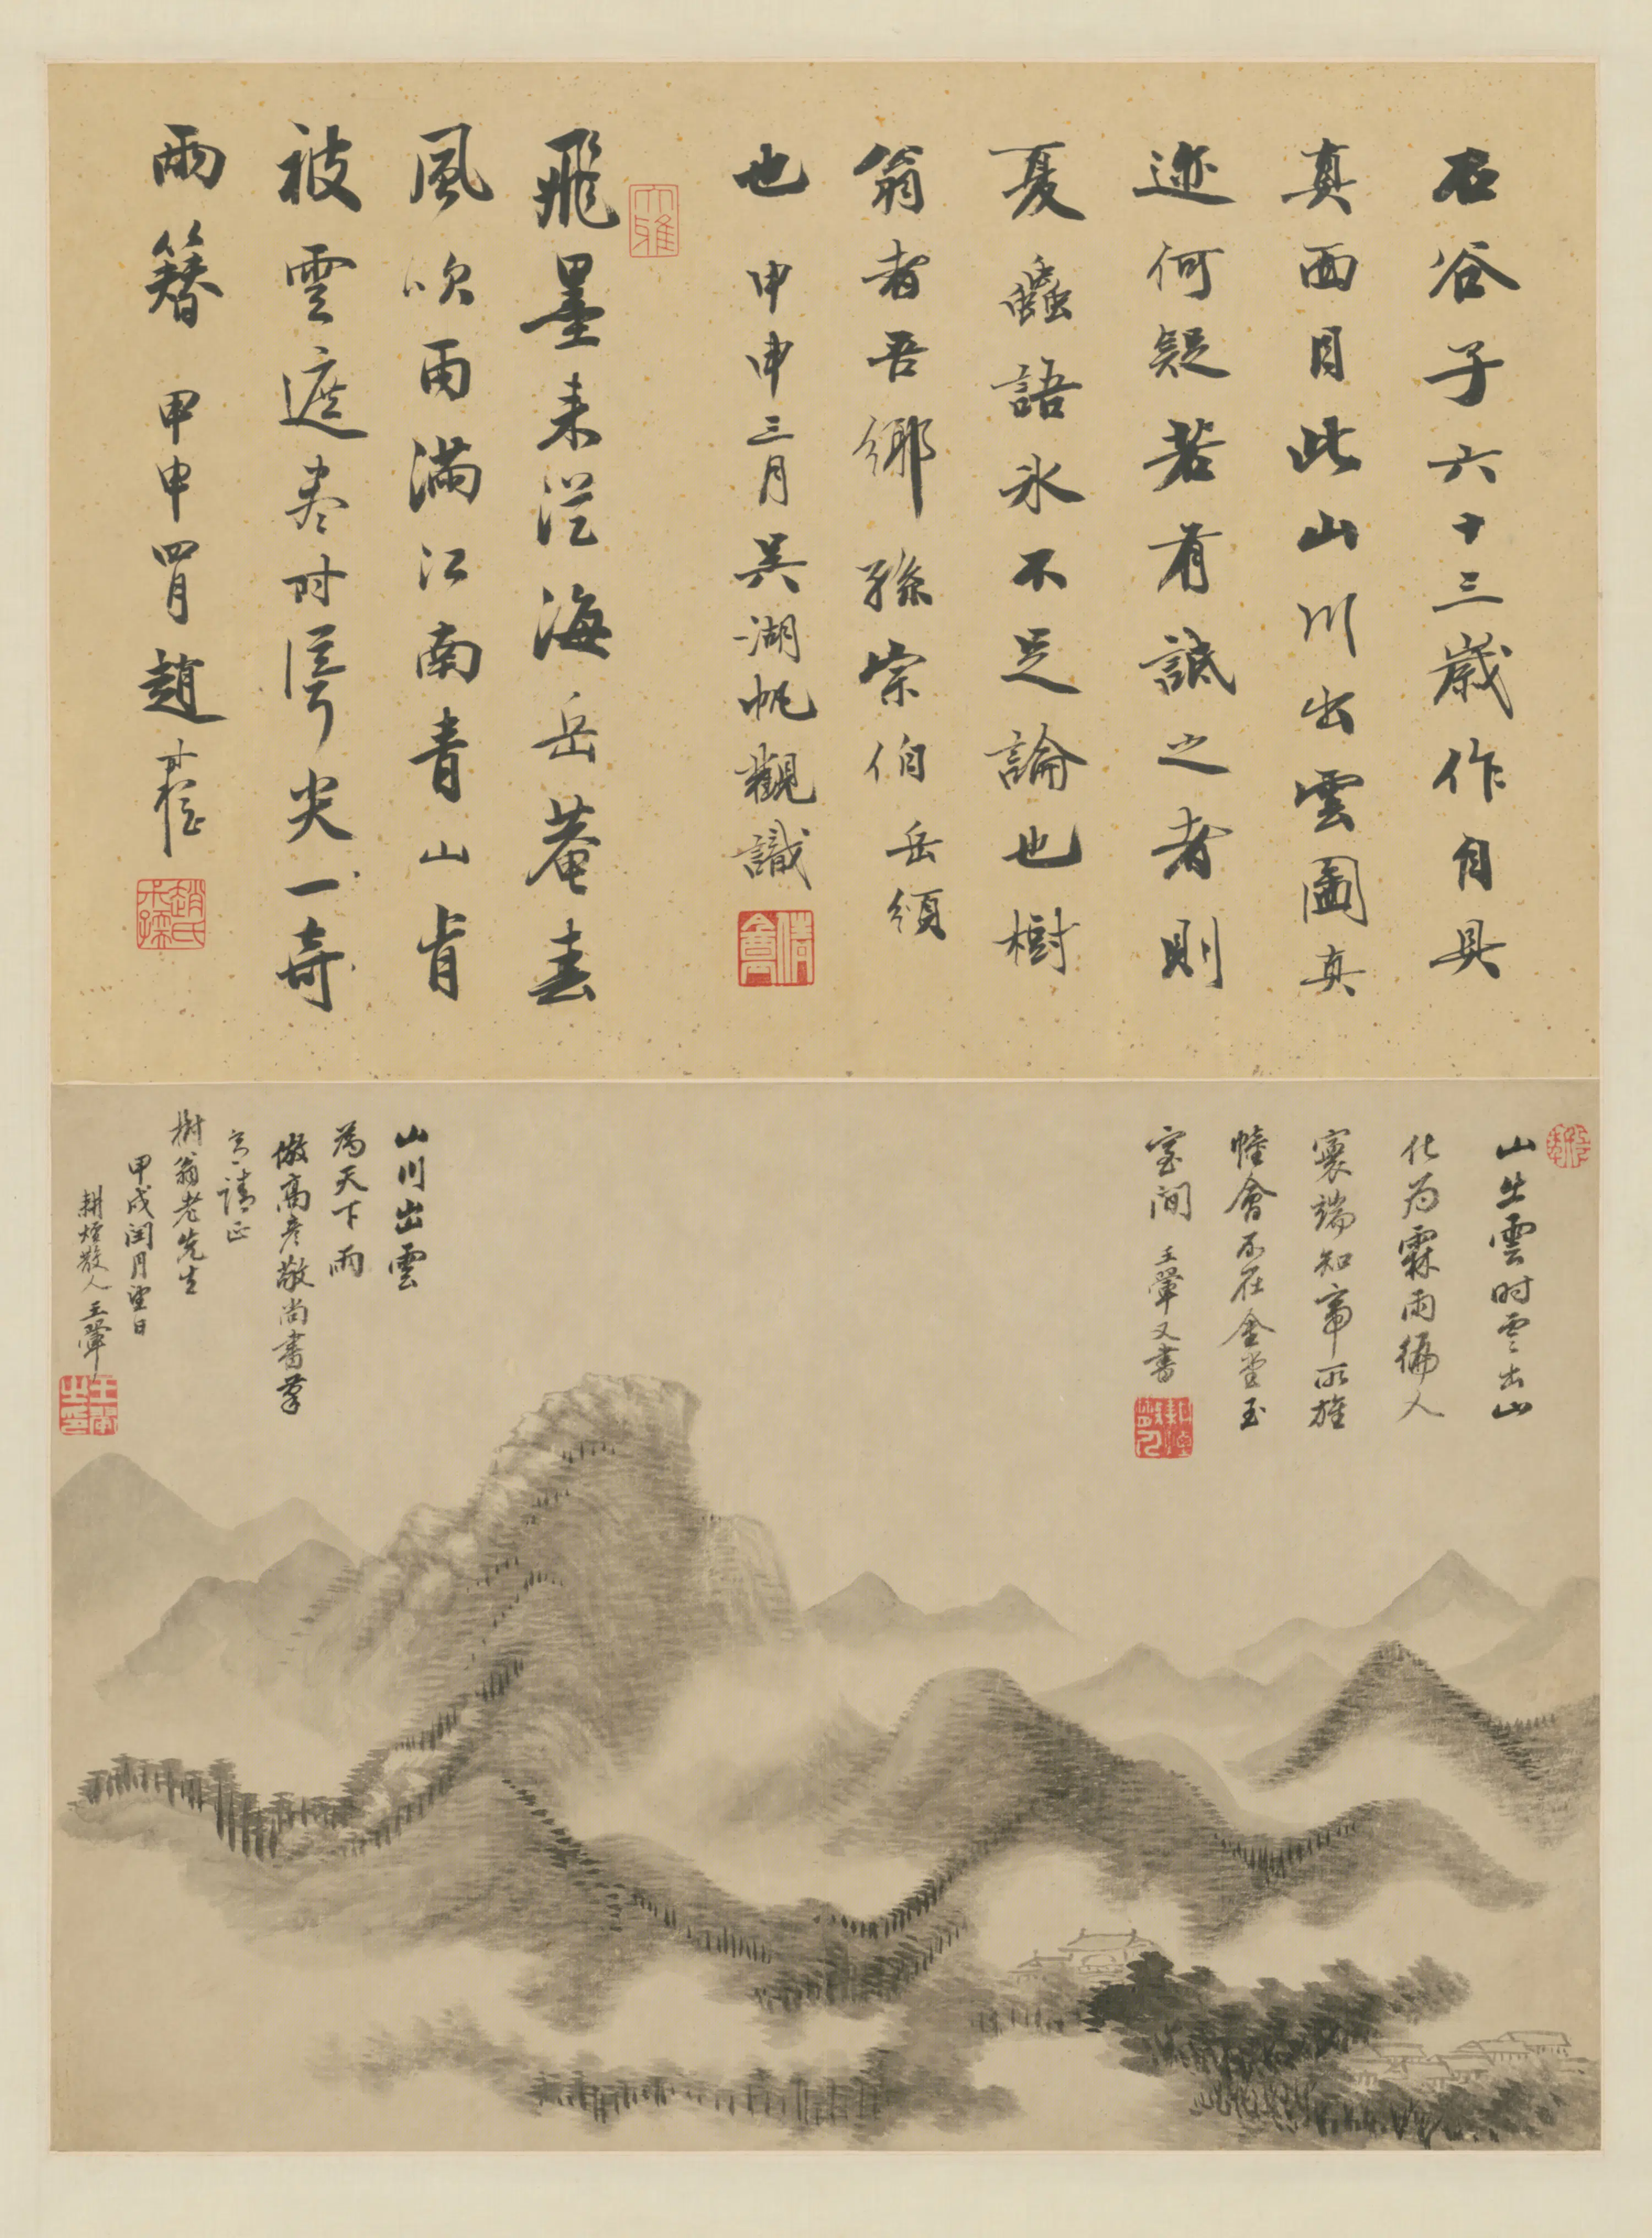 石谷子六十三歲作自具
真面目此山川出雲圖真
迹何疑若有詆之者則
夏蟲語氷不足論也樹
翁者吾鄉孫宗伯岳頒
也 甲申三月吳湖帆觀識
飛墨來從海岳菴春
風吹雨滿江南青山肯
被雲遮盡時露尖一奇
兩簪 甲申四月趙
山出雲時雲出山
化為霖雨徧人
寰端知帝所旌
幢會不在金堂玉
室間 王翬又書
山川出雲
為天下雨
倣高彥敬尚書筆
意請正
樹翁老先生
甲戌閏月望日
耕煙散人王翬